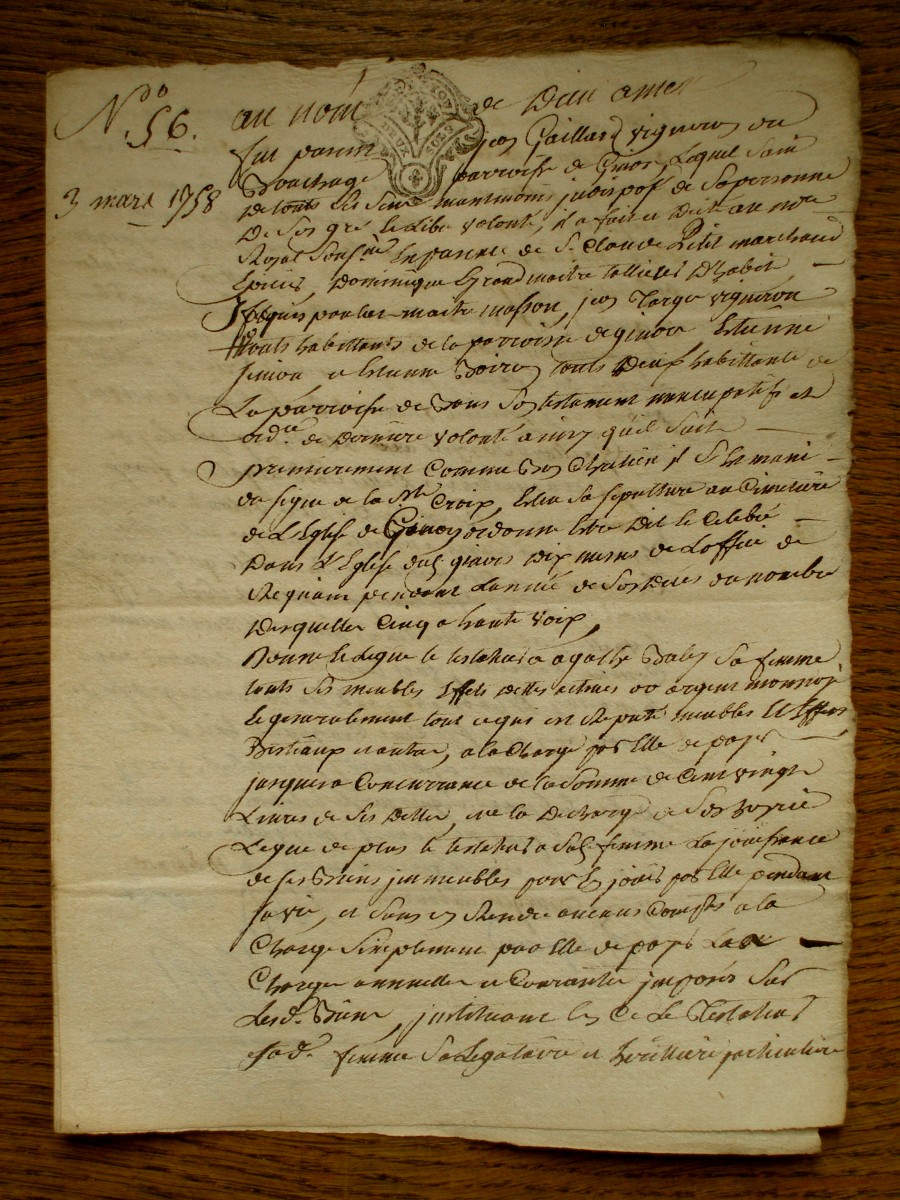 N° 56.
3 mars 1758
au nom de Dieu amen
fut présent jean Gaillard vigneron du
Bouchage parroisse de Lequel sain
de touts ses sens memoire de sa personne
De son gré et libre volonté, il a fait et Dicté au no.re
Royal sous.né En presence de S.r Claude Petit marchand
Epicier, Dominique Legrand maitre tallieur D'habit
maitre masson, jean Large vigneron
touts habittants de la parroisse de Estienne
simon et Etienne touts Deux habittants de
La parroisse de son testament nuncupatif et
ord.ce de Derniere volonté ainsy qu'il suit
premierement Comme Bon Chretien il s'est muni
du signe de la S.te Croix, Eslu sa sepulture au Cimetiere
de L'Eglise de ordonne estre Dit et Celebré
Dans L'Eglise dud. Dix messes de L'office de
Requiem pendant L'année de son Déces du nombre
Desquelles Cinq a haute voix,
Donne et Legue le testateur a agathe sa femme
touts ses meubles Effets Dettes actives or argent monnoyé
Et generalement tout ce qui est Reputé meubles Et Effets
Bestiaux et autre, a la Charge par Elle de payer
jusques a Concurrance de la Somme de Cent vingt
Livres de ses Dettes, et a la Decharge de son hoirie
Legue de plus le testateur a Sad. femme La joüissance
de ses Biens jmmeubles pour En joüir par Elle pendant
sa vie, et sans en Rendre aucuns Comptes a la
Charge Simplement par Elle de payer Les
Charges annuelles et Courantes jmposés sur
Lesd. Biens, jnstituant En Ce Le Testateur
sad.e femme Sa Legataire et heritiere particuliere